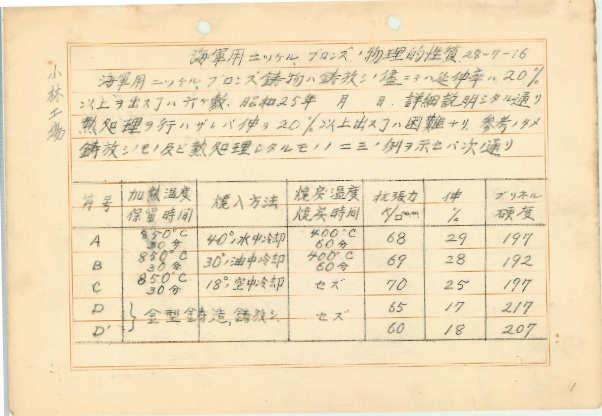 海軍用ニッケル、ブロンズノ物理的性質 28-7-16
小林工場
海軍用ニッケル、ブロンズ鋳物ハ鋳放シノ儘ニテハ延伸率ハ20%
以上ヲ出スコトハ六ケ敷、昭和25年 月 日、詳細説明シタル通リ
熱処理ヲ行ハザレバ伸ヲ20%以上出スコトハ困難ナリ、参考ノタメ
鋳放シノモノ及ビ熱処理シタルモノノ二三ノ例ヲ示セバ次ノ通リ
符号 加熱温度 保留時間 焼入方法 焼戻温度 焼戻時間 抗張力 伸 % ブリネル 硬度
A 850°C 30分 40°ノ水中冷却 400°C 60分 68 29 197
B 850°C 30分 30°ノ油中冷却 400°C 60分 69 28 192
C 850°C 30分 18°ノ空中冷却 セズ 70 25 197
D 金型鋳造、鋳放シ セズ 65 17 217
D' 60 18 207
1